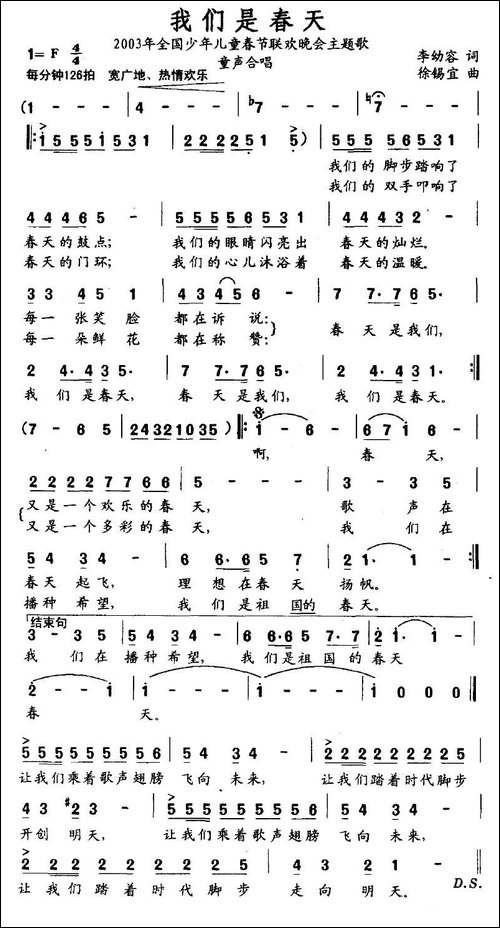 我们是春天
2003年全国少年儿童春节联欢晚会主题歌
1=F 4/4
童声合唱
李幼容 词
徐锡宜 曲
每分钟126拍 宽广地、热情欢乐
(1 - - - | 4 - - - | ♭7 - - - | ♮7 - - -
‖: 1 5 5 5 1 5 3 1 | 2 2 2 2 5 1 5) | 5 5 5 5 6 5 3 1 |
我们的 脚步踏响了
我们的 双手叩响了
4 4 4 6 5 - | 5 5 5 5 6 5 3 1 | 4 4 4 3 2 - |
春天的鼓点; 我们的眼睛闪亮出 春天的灿烂。
春天的门环; 我们的心儿沐浴着 春天的温暖。
3 3 4 5 1 | 4 3 4 5 6 | 7 7· 7 6 5· |
每一 张笑 脸 都在诉 说:
每一 朵鲜 花 都在称 赞:
春 天是我们,
2 4· 4 3 5· | 7 7· 7 6 5· | 2 4· 4 3 1· :‖
我 们 是春天, 春 天 是我们, 我 们 是春天。
(7 - 6 5 | 2 4 3 2 1 0 3 5) ‖: 1 - 6 - | 6 7 1 6 - |
啊, 春 天,
2 2 2 2 7 7 6 6 | 5 - - - | 3 - 3 5 |
又是一个欢乐的春 天, 歌 声在
又是一个多彩的春 天, 我 们在
5 4 3 4 - | 6 6· 6 5 7 | 2 1· 1 - :‖
春天 起飞, 理 想在春 天 扬帆。
播种 希望, 我 们是祖 国的 春天。
结束句
3 - 3 5 | 5 4 3 4 - | 6 6·6 5 7·7 | 2 1· 1 -
我 们在 播种 希望, 我 们是祖 国 的 春天
2 - - 1 | 1 - - - | 1 - - - | 1 0 0 0 ‖
春 天。
5 5 5 5 5 5 5 5 | 5 4 3 4 - | 2 2 2 2 2 2 2 2 |
让我们乘着歌声翅膀 飞向 未来, 让我们踏着时代脚步
4 3 #2 3 - | 5 5 5 5 5 5 5 5 | 5 4 3 4 - |
开创 明天, 让我们乘着歌声翅膀 飞向 未来,
2 2 2 2 2 2 2 2 | 4 3 2 1 - ‖
让我们踏着时代脚步 走向 明天。
D.S.